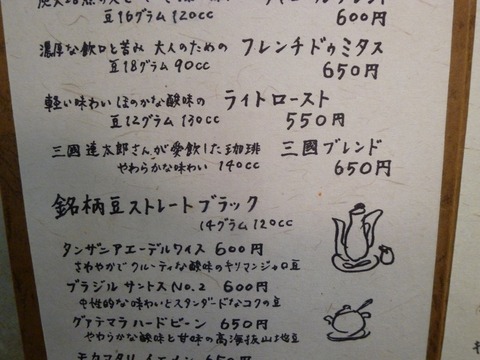 豆16グラム 120cc
600円
濃厚な飲口と苦み 大人のための フレンチドゥミタス
豆18グラム 90cc 650円
軽い味わい ほのかな酸味の ライトロースト
豆12グラム 130cc 550円
三國連太郎さんが愛飲した珈琲 三國ブレンド
やわらかな味わい 140cc 650円
銘柄豆ストレートブラック
14グラム 120cc
タンザニアエーデルワイス 600円
さわやかでフルーティな酸味のキリマンジャロ豆
ブラジル サントス No.2 600円
中性的な味わいとスタンダードなコクの豆
グァテマラ ハードビーン 650円
やわらかな酸味と甘味の高海抜山地豆
モカマタリ イエメン 650円